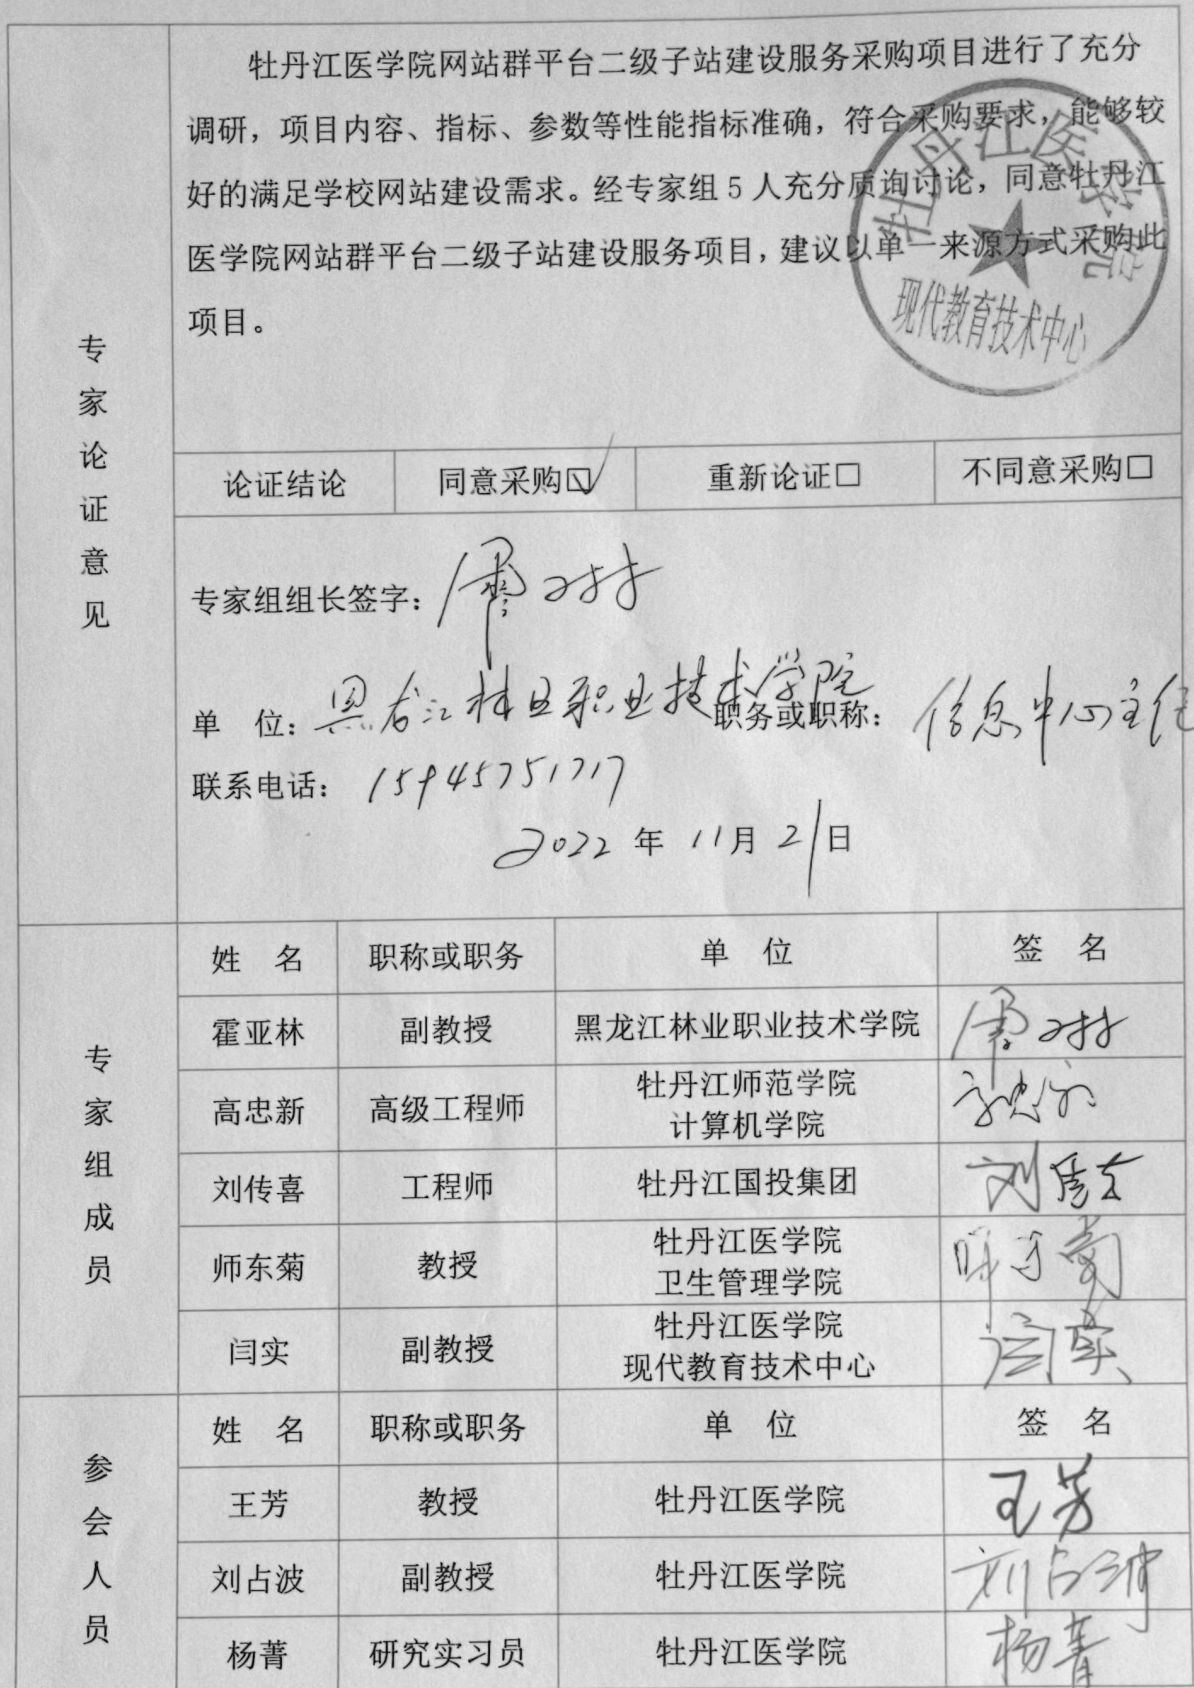 牡丹江医学院网站群平台二级子站建设服务采购项目进行了充分
调研，项目内容、指标、参数等性能指标准确，符合采购要求，能够较
好的满足学校网站建设需求。经专家组5人充分质询讨论，同意牡丹江
医学院网站群平台二级子站建设服务项目，建议以单一来源方式采购此
项目。
牡丹江医学院
现代教育技术中心
专家论证意见
论证结论 同意采购☑ 重新论证□ 不同意采购□
专家组组长签字：霍亚林
单 位：黑龙江林业职业技术学院 职务或职称：信息中心主任
联系电话：15945751717
2022年11月21日
专家组成员
姓 名 职称或职务 单 位 签 名
霍亚林 副教授 黑龙江林业职业技术学院 霍亚林
高忠新 高级工程师 牡丹江师范学院
计算机学院 高忠新
刘传喜 工程师 牡丹江国投集团 刘传喜
师东菊 教授 牡丹江医学院
卫生管理学院 师东菊
闫实 副教授 牡丹江医学院
现代教育技术中心 闫实
参会人员
姓 名 职称或职务 单 位 签 名
王芳 教授 牡丹江医学院 王芳
刘占波 副教授 牡丹江医学院 刘占波
杨菁 研究实习员 牡丹江医学院 杨菁